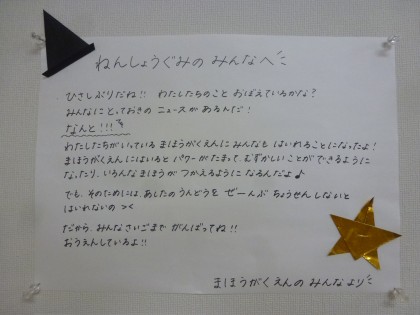 ねんしょうぐみの みんなへ
ひさしぶりだね!! わたしたちのこと おぼえているかな?
みんなにとっておきの ニュースが あるんだ!
なんと!!!
わたしたちがいっている まほうがくえんに みんなも はいれることになったよ!
まほうがくえんに はいると パワーが たまって、むずかしいことが できるように
なったり、いろんなまほうが つかえるように なるんだよ♪
でも、そのためには、あしたの うんどうを ぜーんぶ ちょうせんしないと
はいれないの ><
だから、みんなさいごまで がんばってね!!
おうえんしているよ!!
まほうがくえんの みんなより